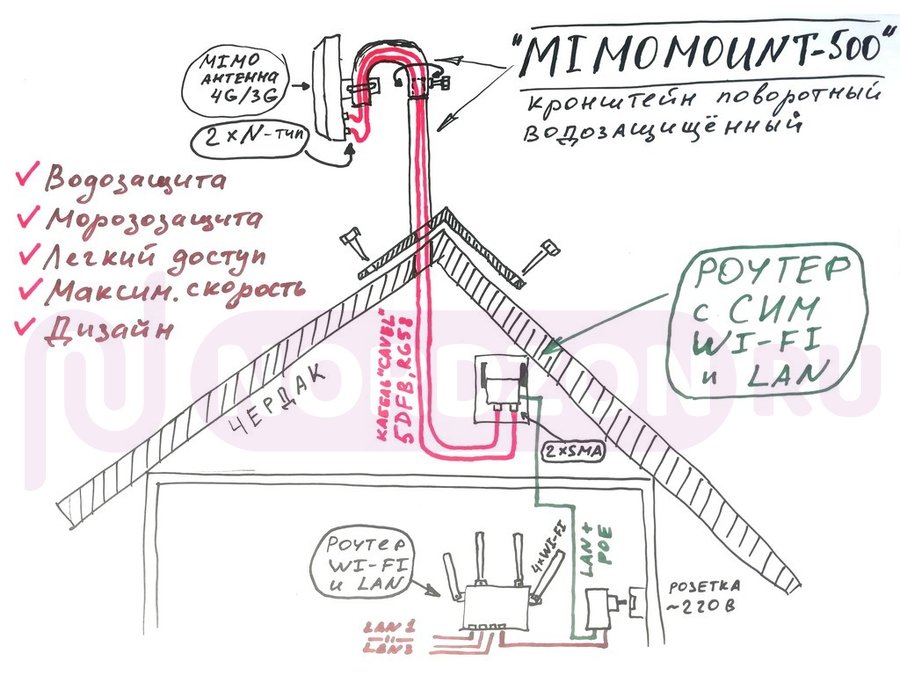 "MIMOMOUNT-500"
кронштейн поворотный
водозащищённый
MIMO
АНТЕННА
4G/3G
2×N-тип
✓ Водозащита
✓ Морозозащита
✓ Легкий доступ
✓ Максим. скорость
✓ Дизайн
РОУТЕР
с СИМ
WI-FI
и LAN
КАБЕЛЬ "CAVEL"
5DFB, RG58
ЧЕРДАК
2×SMA
NORDZON.RU
РОУТЕР
WI-FI
и LAN
4×WI-FI
LAN +
POE
РОЗЕТКА
~220В
LAN 1
LAN 3